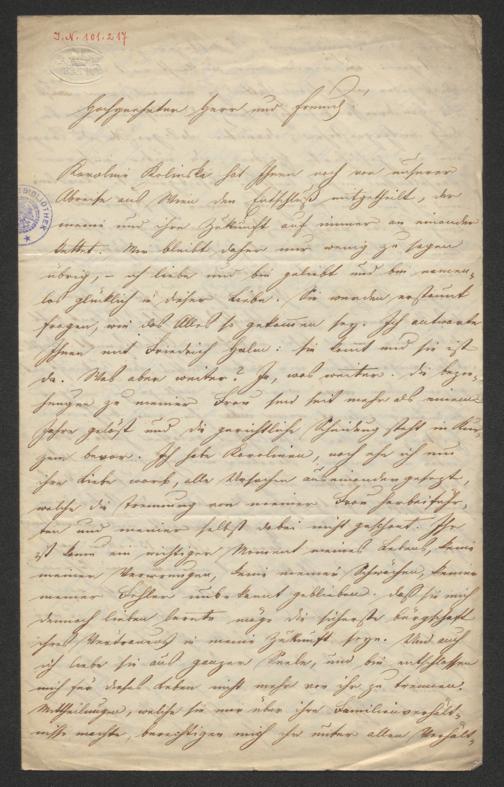 I. N. 101.217
BIBLIOTHEK
Hochverehrter Herr und Freund!
Karoline Kolinska hat Ihnen noch vor unserer
Abreise aus Wien den Entschluß mitgetheilt, der
meine und ihre Zukunft auf immer an einander
kettet. Mir bleibt daher nur wenig zu sagen
übrig, – ich liebe und bin geliebt und bin namen-
los glücklich in dieser Liebe. Sie werden erstaunt
fragen, wie das Alles so gekommen sey. Ich antworte
Ihnen mit Friedrich Halm: sie kommt und sie ist
da. Was aber weiter? Ja, was weiter. Die Bezie-
hungen zu meiner Frau sind seit mehr als einem
Jahre gelöst und die gerichtliche Scheidung steht in Kür-
zem bevor. Ich habe Karolinen, noch ehe ich um
ihre Liebe warb, alle Ursachen auseinandergesetzt,
welche die Trennung von meiner Frau herbeiführ-
ten und meiner selbst dabei nicht geschont. Ihr
ist kaum ein wichtiger Moment meines Lebens, keine
meiner Verirrungen, keine meiner Schwächen, keiner
meiner Fehler unbekannt geblieben. Daß sie mich
dennoch lieben lernte möge die sicherste Bürgschaft
ihres Vertrauens in meine Zukunft seyn. Und auch
ich liebe sie aus ganzer Seele, und bin entschlossen
mich für dieses Leben nicht mehr von ihr zu trennen.
Mittheilungen, welche sie mir über ihre Familienverhält-
nisse machte, berechtigen mich ihr unter allen Verhält-